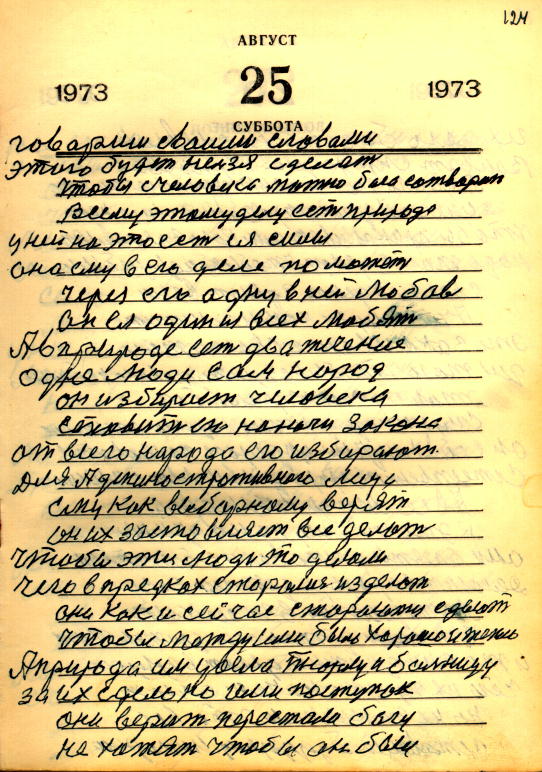 124
АВГУСТ
1973 25 1973
СУББОТА
говарили своими словами
этого будет нелзя сделат
чтобы счеловека можно была сотварит
Всему этому делу ест природа
у ней на это ест ея силы
она ему в его деле поможет
через его адну в ней Любов
он ея один из всех любят
А в природе ест два течение
одне люди сам народ
он избирает человека
ставит его на начи закона
от всего народа его избирают
для Админостротивного лица
ему как выбарному верят
он их заставляет все делат
чтобы эти люди то делали
чего в предках старалис изделат
они как и сейчас стараются сделат
чтобы между ими была харашо и жизнь
А природа им ввела тюрму и болницу
за их сделоно ими поступок
они верит перестала богу
не хотят чтобы он был